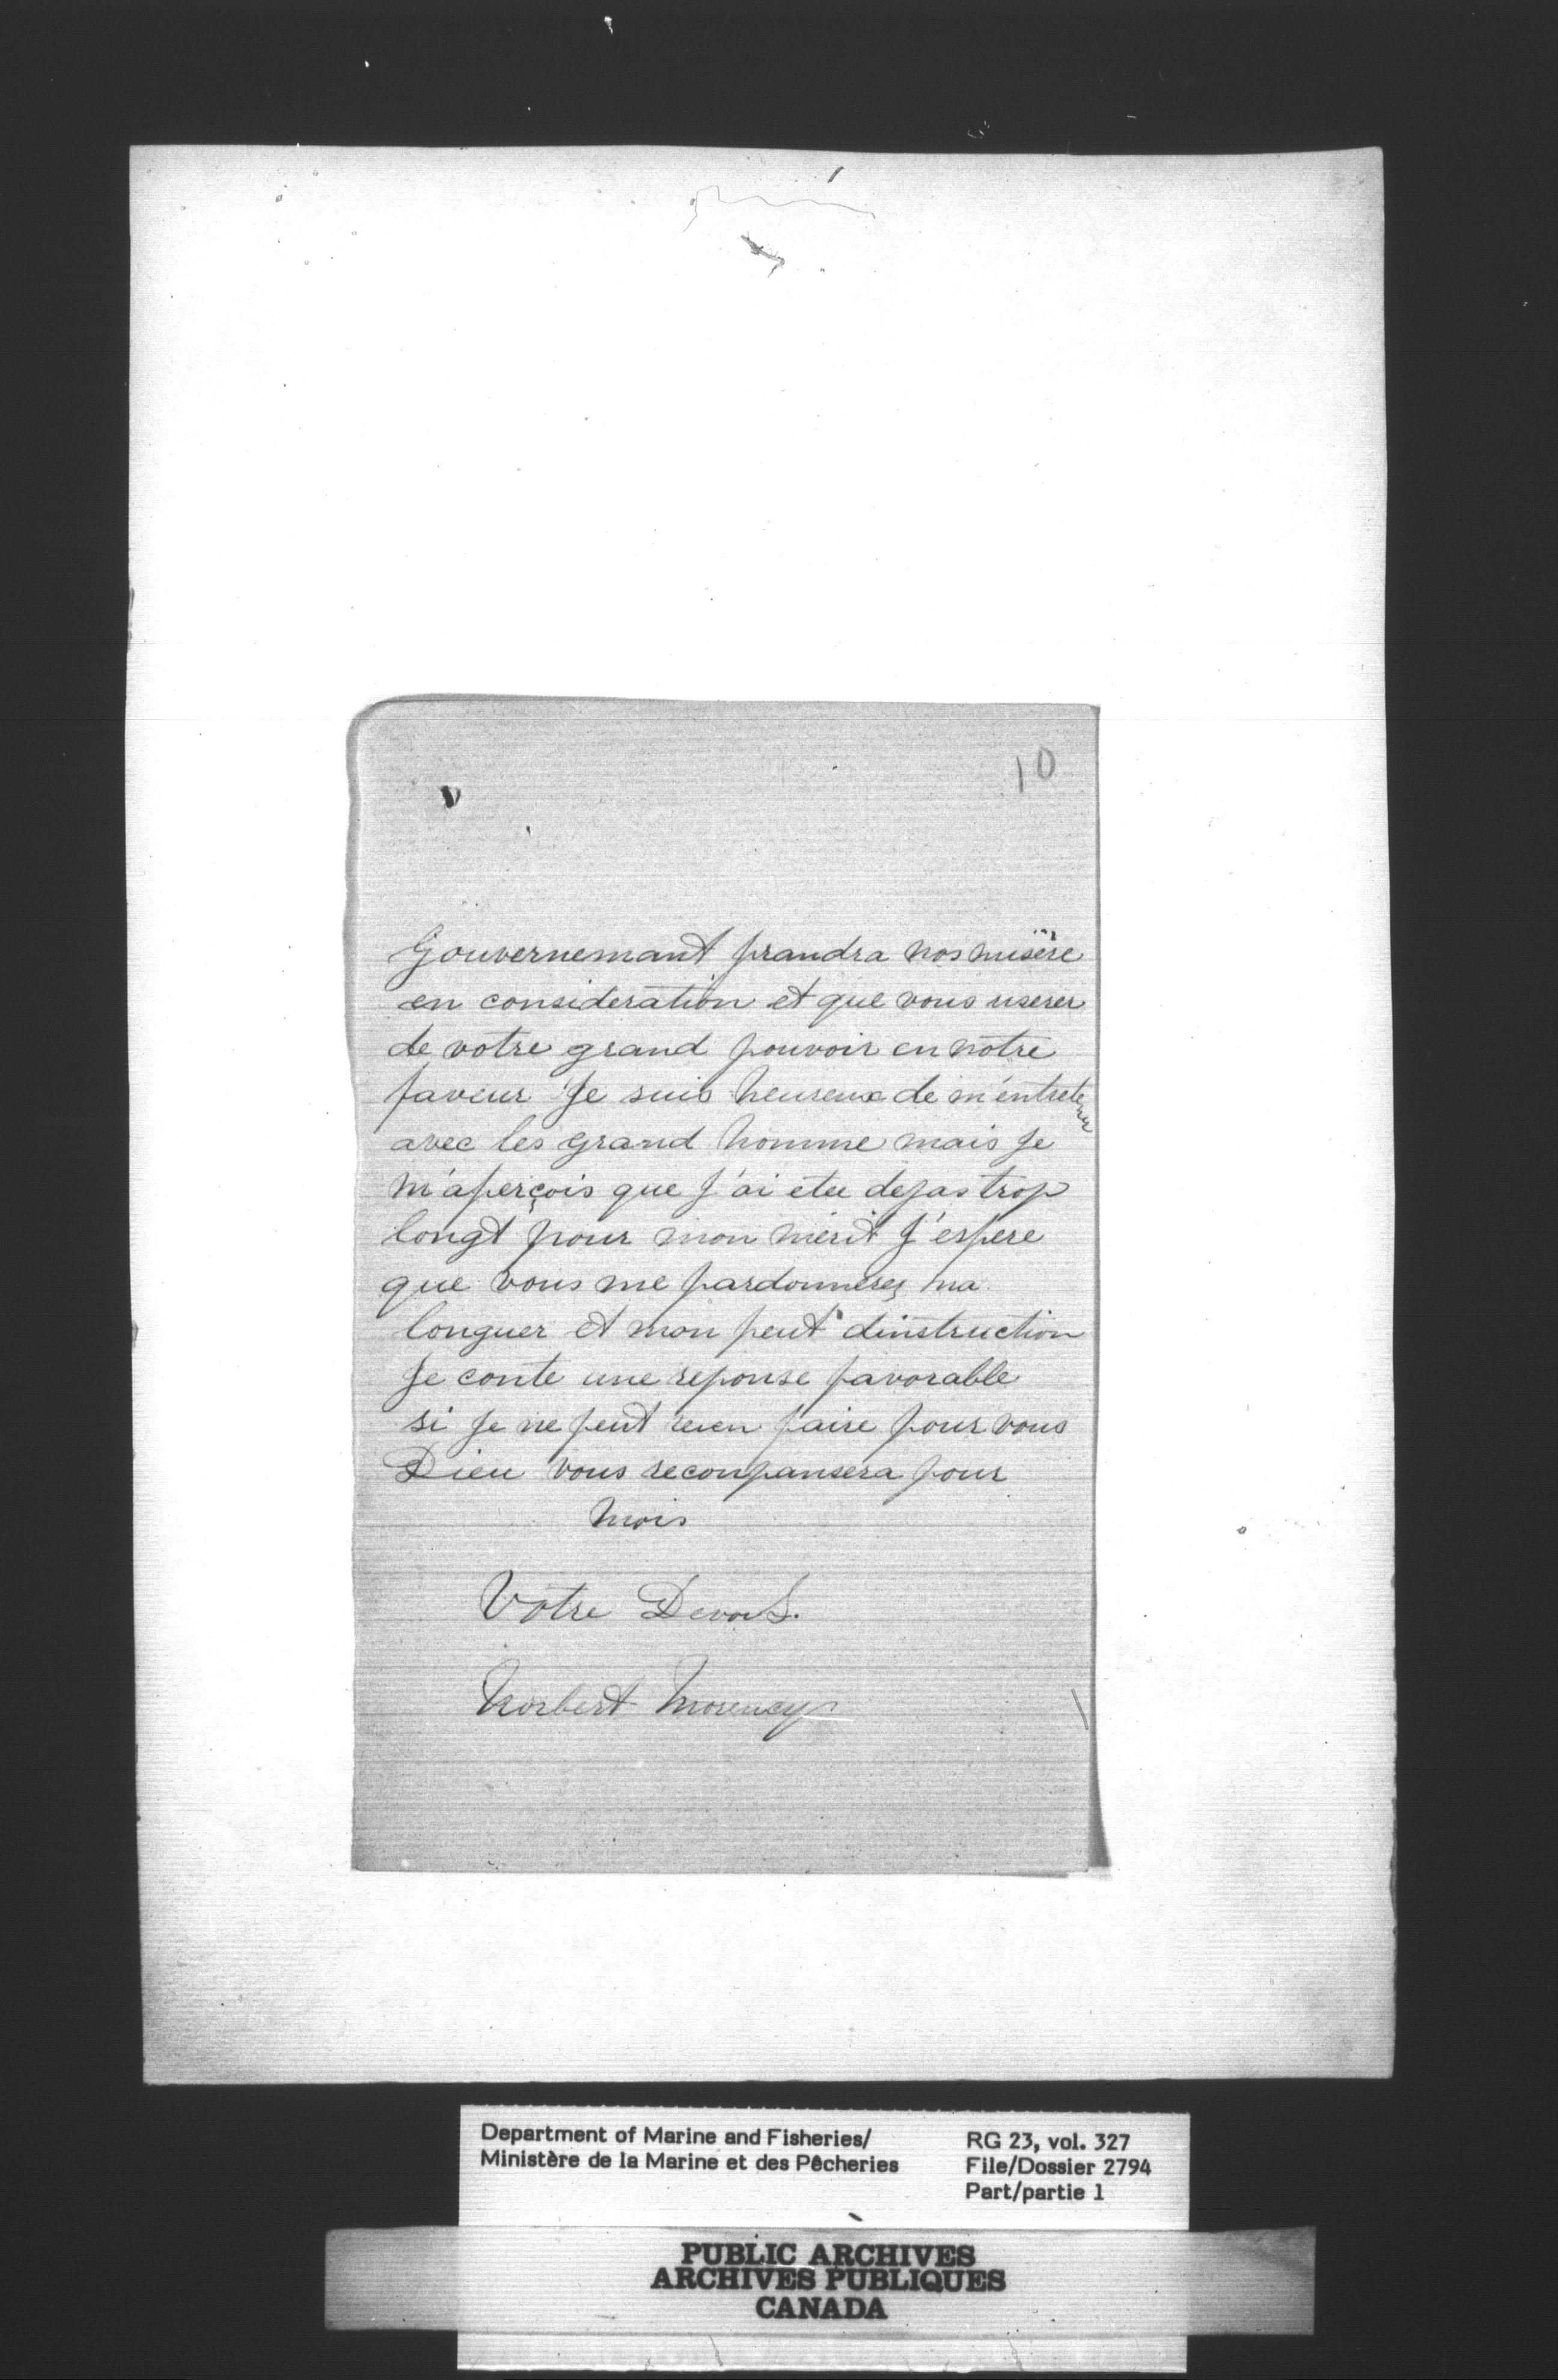 10
Gouvernemant prandra nos misère
en consideration et que vous userer
de votre grand pouvoir en notre
faveur Je suis heureux de m'entretenu
avec les grand homme mais Je
m'aperçois que J'ai etee dejas trop
longt pour mon merit J'espere
que vous me pardonnerez ma
longuer et mon peut d'instruction
Je conte une reponse favorable
si Je ne peut rien faire pour vous
Dieu vous recompansera pour
mois
Votre
Norbert Morency
Department of Marine and Fisheries/
Ministère de la Marine et des Pêcheries
RG 23, vol. 327
File/Dossier 2794
Part/partie 1
PUBLIC ARCHIVES
ARCHIVES PUBLIQUES
CANADA